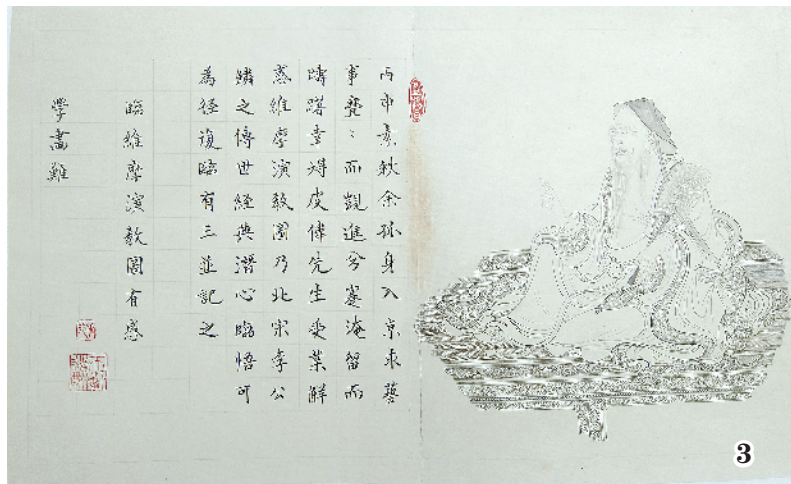 丙申素秋余孤身入京求藝
事 㼽:而觀進兮蹇淹留而
躊躇幸得皮傳先生受業鮮
懑維摩演教圖乃北宋李公
麟之傳世經典潛心臨悟可
為徑復臨有三並記之
臨維摩演教圖有感
學畫難
3